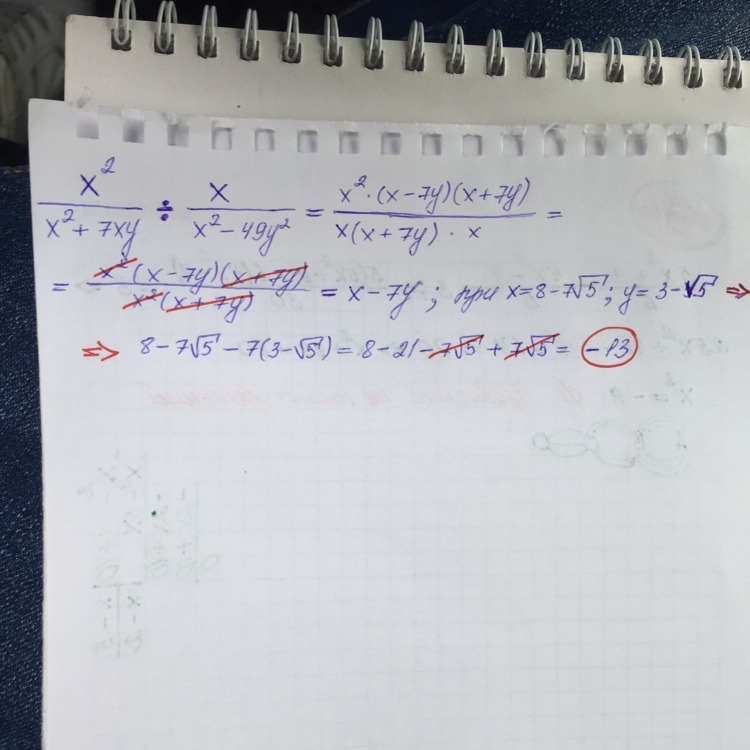 x²/(x²+7xy) ÷ x/(x²-49y²) = x²·(x-7y)(x+7y)/(x(x+7y)·x) =
= x²(x-7y)(x+7y)/(x²(x+7y)) = x-7y; при x=8-7√5; y=3-√5 ⇒
⇒ 8-7√5-7(3-√5)=8-21-7√5+7√5= -13